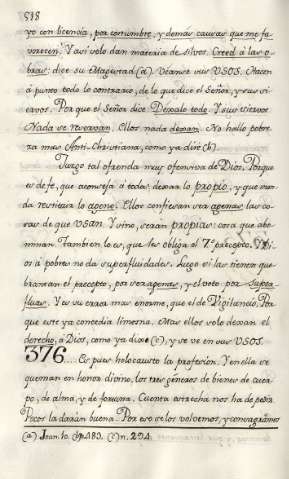 518
yo con licencia, por costumbre, y demás causas que me fa-
vorecen. Y assi velo dan materia de silvos. Creed á las o-
bras: dice su Magestad (a). Véanse sus USOS. Hacen
á punto todo lo contrario, de lo que dice el Señor, y sus si-
ervos. Por que el Señor dice Dexalo todo. Y sus siervos
Nada se reservan. Ellos nada dexan. No hallo pobre-
za mas Anti-Christiana, como ya dixe (b).
Juzgo tal ofrenda muy ofensiva de Dios. Porque
es de fe, que aconseja á todos dexar lo propio, y que man-
da restituir lo ageno. Ellos confiesan ser agenas las co-
sas de que USAN. Y sino, serán propias: cosa que abo-
minan. Tambien lo es, que les obliga el 7º precepto. Y Di-
os á pobres no da superfluidades. Luego si las tienen que-
brantan el precepto, por ser agenas, y el voto por super-
fluas. Y es su error mas enorme, que el de Vigilancio. Por
que este ya concedia limosna. Mas ellos solo dexan el
derecho, a Dios, como ya dixe (c), y se ve en sus USOS.
376.... Es pues holocausto la profesion. Y en ella se
queman en honor divino, los tres géneros de bienes de cuer-
po, de alma, y de fortuna. Cuenta estrecha nos ha de pedir.
Pocos la darán buena. Por eso se los volvemos, y consagramos
(a) Joan. 10. (b) p. 483. (c) n. 294.